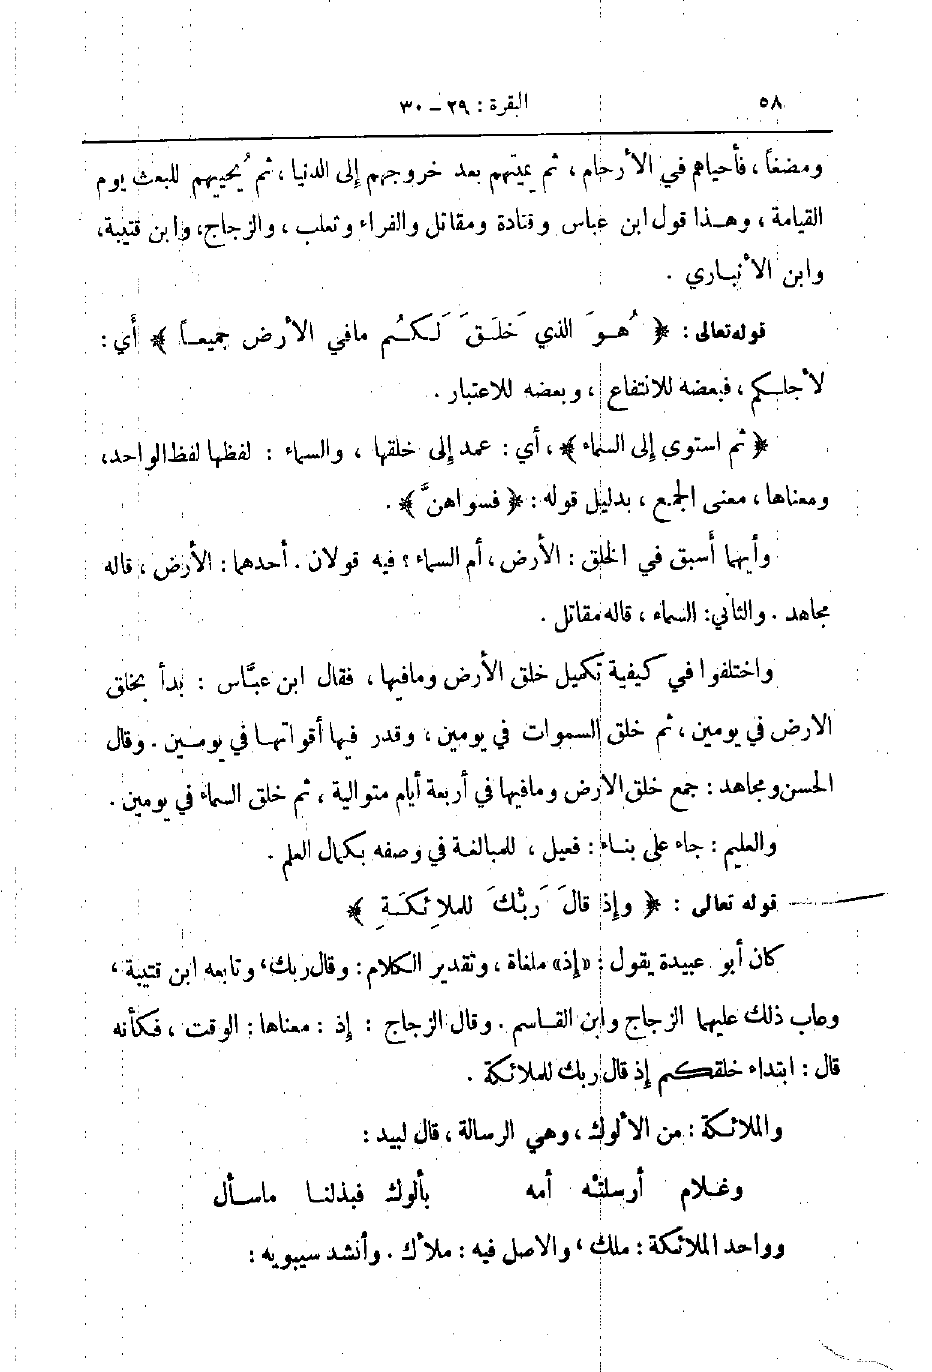 ٥٨ البقرة : ٢٩ – ٣٠
ومضغاً ، فأحياهم في الأرحام ، ثم يميتهم بعد خروجهم إلى الدنيا ، ثم يُحييهم للبعث يوم
القيامة ، وهذا قول ابن عباس وقتادة ومقاتل والفراء وثعلب ، والزجاج ، وابن قتيبة ،
وابن الأنباري .
قوله تعالى : ﴿ هُوَ الذي خَلَقَ لَكُم مافي الأرض جميعاً ﴾ أي :
لأجلكم ، فبعضه للانتفاع ، وبعضه للاعتبار .
﴿ ثم استوى إلى السماء ﴾ ، أي : عمد إلى خلقها ، والسماء : لفظها لفظ الواحد ،
ومعناها ، معنى الجمع ، بدليل قوله : ﴿ فسواهنَّ ﴾ .
وأيهما أسبق في الخلق : الأرض ، أم السماء ؟ فيه قولان . أحدهما : الأرض ، قاله
مجاهد . والثاني : السماء ، قاله مقاتل .
واختلفوا في كيفية تكميل خلق الأرض ومافيها ، فقال ابن عبَّاس : بدأ بخلق
الارض في يومين ، ثم خلق السموات في يومين ، وقدر فيها أقواتها في يومين . وقال
الحسن ومجاهد : جمع خلق الارض ومافيها في أربعة أيام متوالية ، ثم خلق السماء في يومين .
والعليم : جاء على بناء : فعيل ، للمبالغة في وصفه بكمال العلم .
قوله تعالى : ﴿ وإذ قالَ رَبُّكَ للملائِكَةِ ﴾
كان أبو عبيدة يقول : «إذ» ملغاة ، وتقدير الكلام : وقال ربك ، وتابعه ابن قتيبة ،
وعاب ذلك عليهما الزجاج وابن القاسم . وقال الزجاج : إذ : معناها : الوقت ، فكأنه
قال : ابتداء خلقكم إذ قال ربك للملائكة .
والملائكة : من الألوك ، وهي الرسالة ، قال لبيد :
وغلام أرسلتْه أمه بألوك فبذلنا ماسأل
وواحد الملائكة : ملك ، والاصل فيه : ملأك . وأنشد سيبويه :